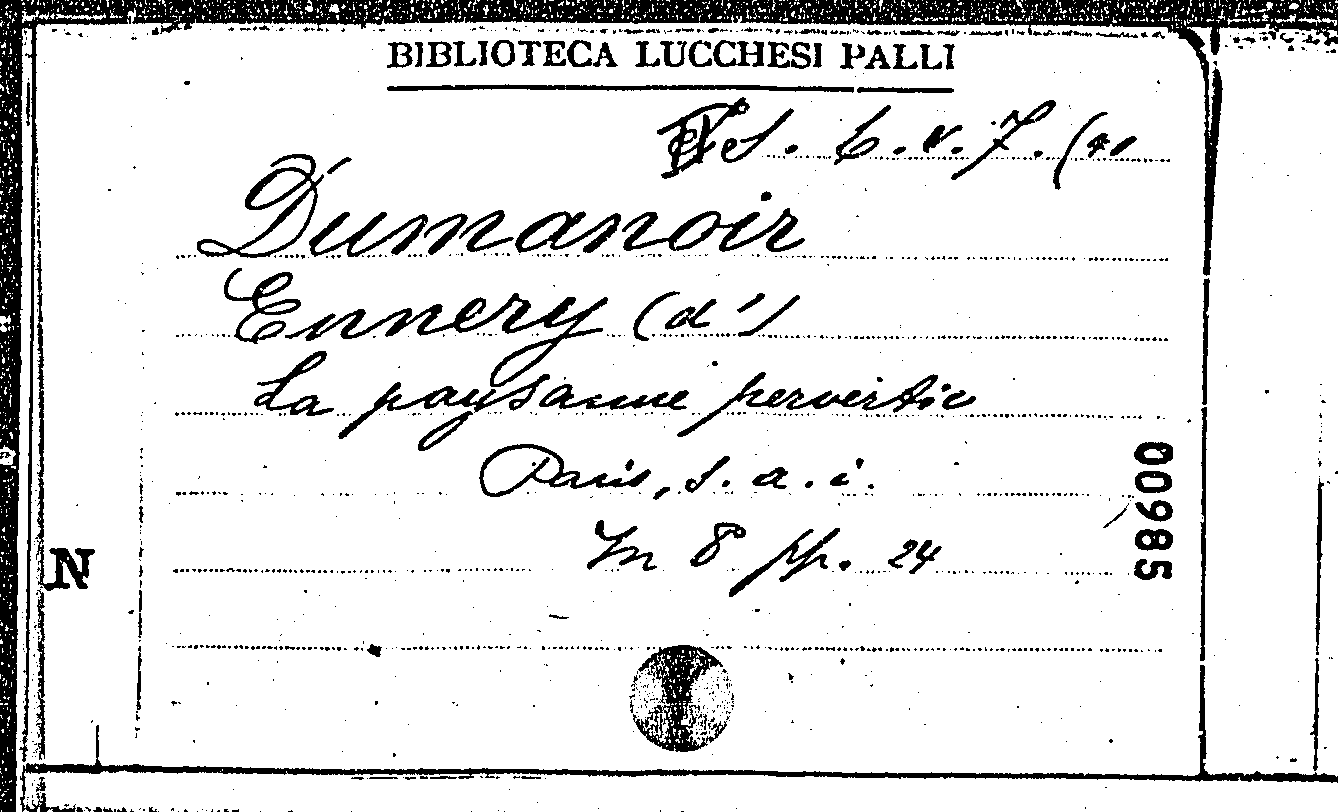 BIBLIOTECA LUCCHESI PALLI
S. 6. v. 7. (
Dumanoir
Ennery (d')
La paysanne pervertie
Paris, s. a. i.
In 8 pp. 24
58600
N